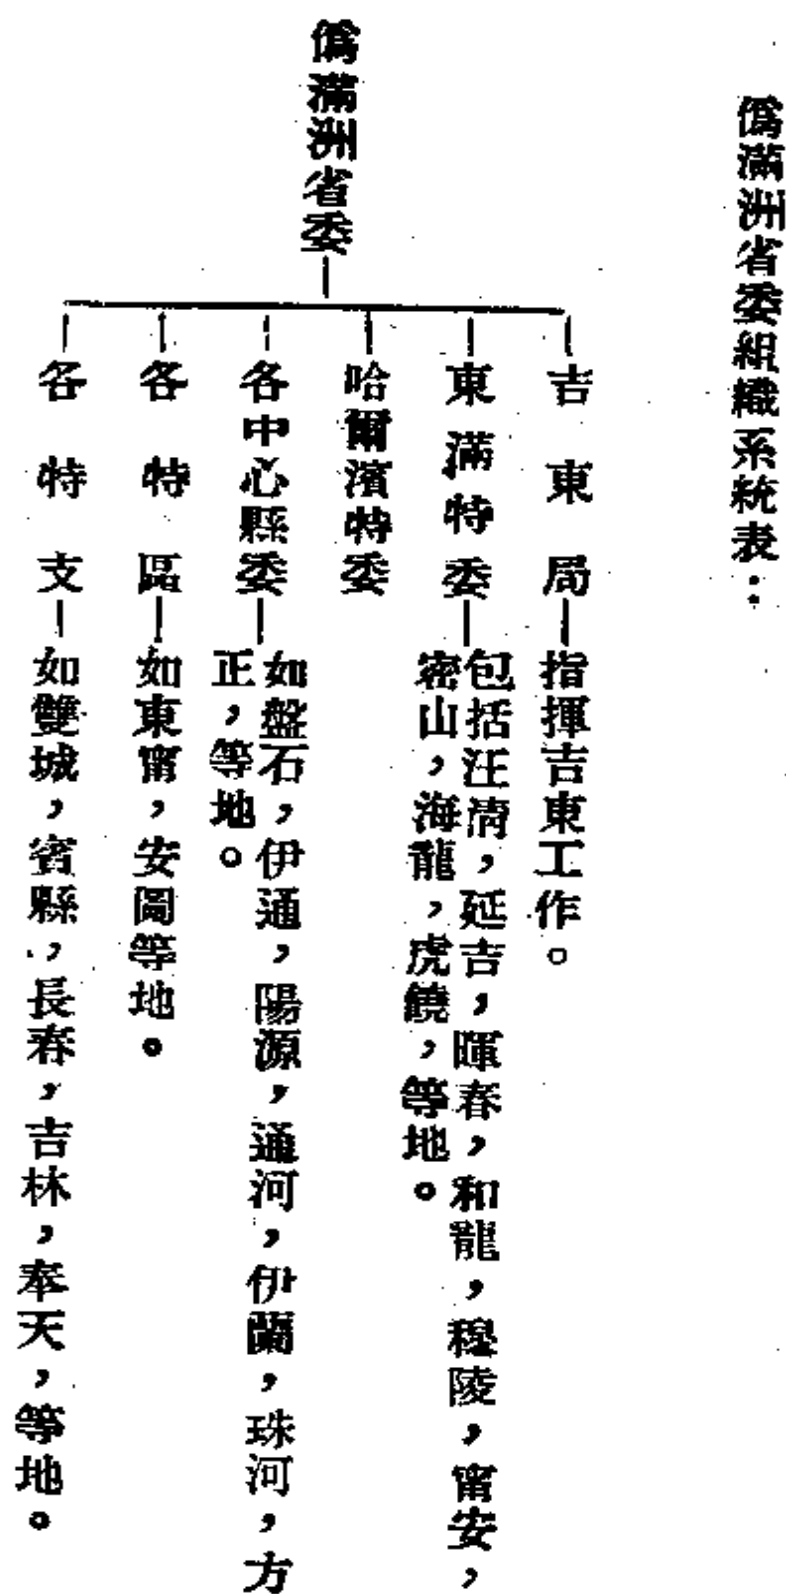 僞滿洲省委組織系統表：
僞滿洲省委
吉東局
指揮吉東工作。
東滿特委
包括汪淸，延吉，暉春，和龍，穆陵，甯安，
密山，海龍，虎饒，等地。
哈爾濱特委
各中心縣委
如盤石，伊通，陽源，通河，伊蘭，珠河，方
正，等地。
各特區
如東甯，安圖等地。
各特支
如雙城，賓縣，長春，吉林，奉天，等地。